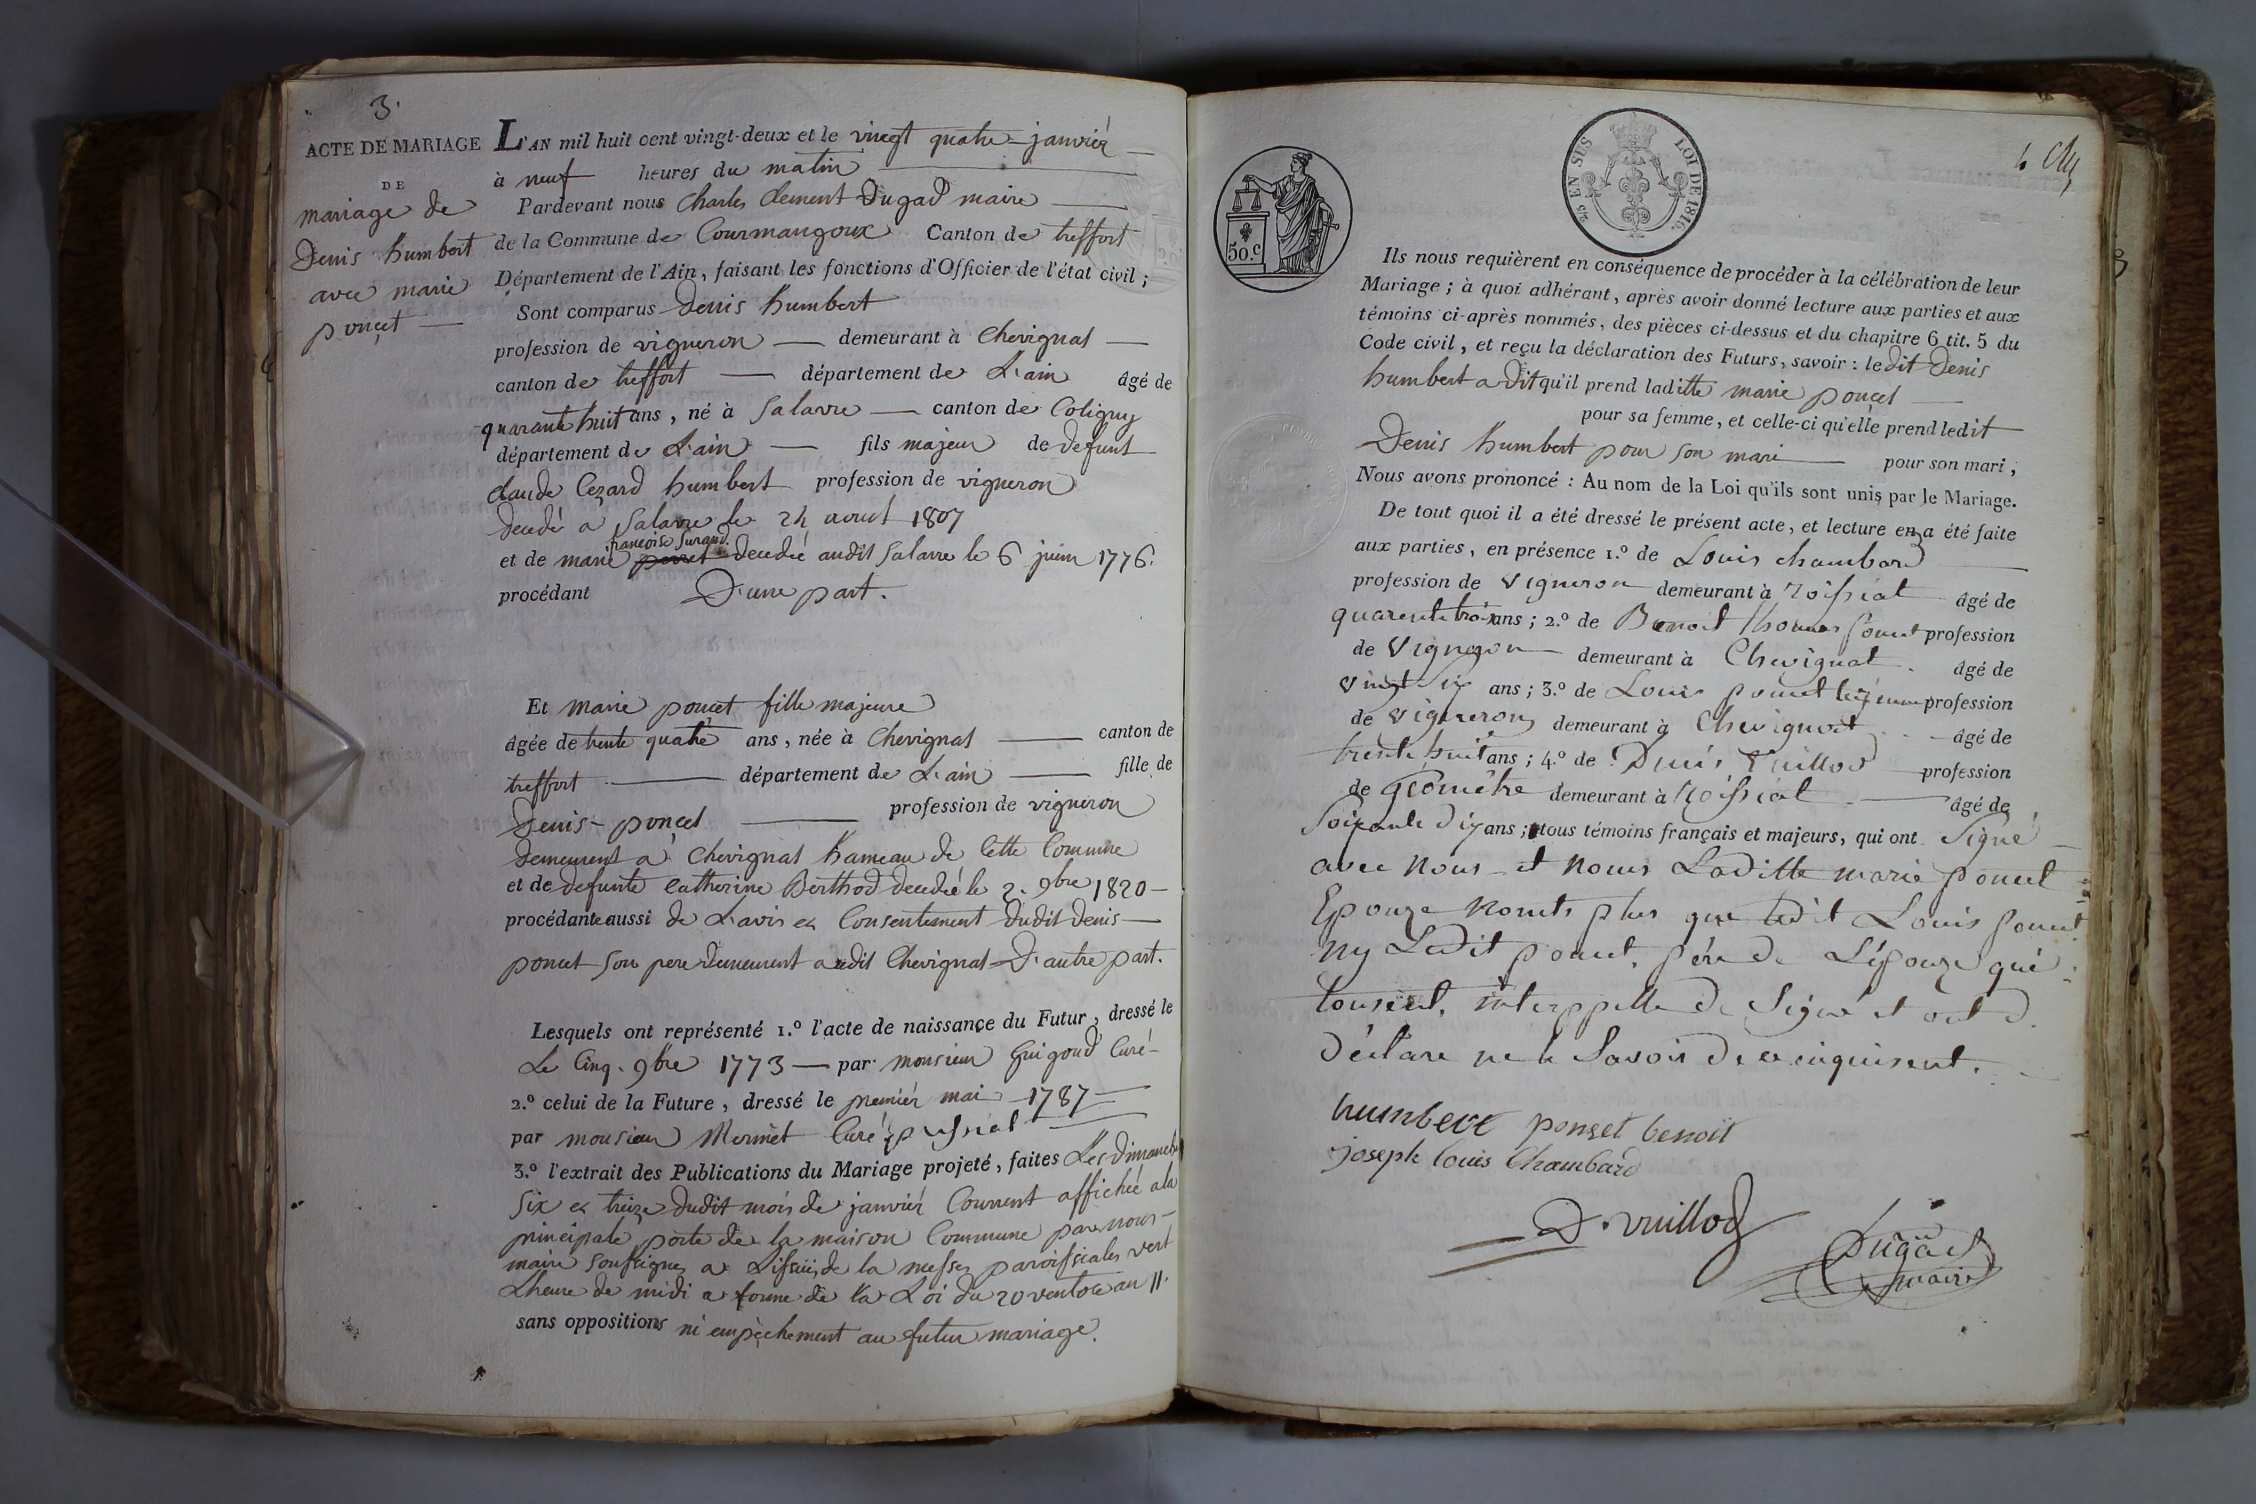 3.
ACTE DE MARIAGE
DE
mariage de
Denis humbert
avec marie
poncet
L'AN mil huit cent vingt-deux et le vingt quatre janvier
à neuf heures du matin
Pardevant nous Charles Clement Dugad maire
de la Commune de Courmangoux Canton de treffort
Département de l'Ain, faisant les fonctions d'Officier de l'état civil;
Sont comparus Denis humbert
profession de vigneron demeurant à Chevignat
canton de treffort département de L'ain âgé de
quarante huit ans, né à Salavre canton de Coligny
département de L'ain fils majeur de defunt
claude Cezard humbert profession de vigneron
decedé a Salavre le 24 aout 1807
françoise Surand
et de marie decedée audit Salavre le 6 juin 1776.
procédant D'une part.
Et marie poncet fille majeure
âgée de trente quatre ans, née à Chevignat canton de
treffort département de L'ain fille de
Denis poncet profession de vigneron
demeurent a Chevignat hameau de Cette Commune
et de defunte Catherine Berthod decedée le 2. 9bre 1820
procédante aussi de L'avis et Consentement dudit denis
poncet son pere demeurent audit Chevignat D'autre part.
Lesquels ont représenté 1.º l'acte de naissance du Futur, dressé le
Le Cinq. 9bre 1773 par monsieur Guigoud Curé
2.º celui de la Future, dressé le premiér mai 1787
par monsieur Mermet Curé
3.º l'extrait des Publications du Mariage projeté, faites Les Dimanches
Six et treize dudit mois de janviér Courrent affichée a la
principale porte de la maison Commune par nous
maire soussignes a L'issuë de la messes paroissiales vert
Lheure de midi a forme de la Loi du 20 ventose an 11.
sans oppositions ni empêchement au futur mariage.
50.c
25 EN SUS LOI DE 1816.
Ils nous requièrent en conséquence de procéder à la célébration de leur
Mariage; à quoi adhérant, après avoir donné lecture aux parties et aux
témoins ci-après nommés, des pièces ci-dessus et du chapitre 6 tit. 5 du
Code civil, et reçu la déclaration des Futurs, savoir: le dit Denis
humbert a Dit qu'il prend laditte marie poncet
pour sa femme, et celle-ci qu'elle prend ledit
Denis humbert pour son mari pour son mari,
Nous avons prononcé: Au nom de la Loi qu'ils sont unis par le Mariage.
De tout quoi il a été dressé le présent acte, et lecture en a été faite
aux parties, en présence 1.º de Louis chambard
profession de Vigneron demeurant à roissiat âgé de
quarente trois ans; 2.º de Benoit thomas poncet profession
de Vigneron demeurant à Chevignat. âgé de
vingt six ans; 3.º de Louis poncet profession
de vigneron demeurant à Chevignat âgé de
trente huit ans; 4.º de Denis Vuillod profession
de Géomètre demeurant à Roissiat âgé de
Soixante dix ans; tous témoins français et majeurs, qui ont Signé
avec nous et nonus Laditte marie poncet
Epouze nonts plus que ledit Louis poncet
ny Ledit poncet. pére de L'épouze qui
Consent. interppelle de Signé et ont
Déclare ne le Savoir de
humbert ponset benoit
joseph louis Chambard
D. vuillod
Dugad
maire